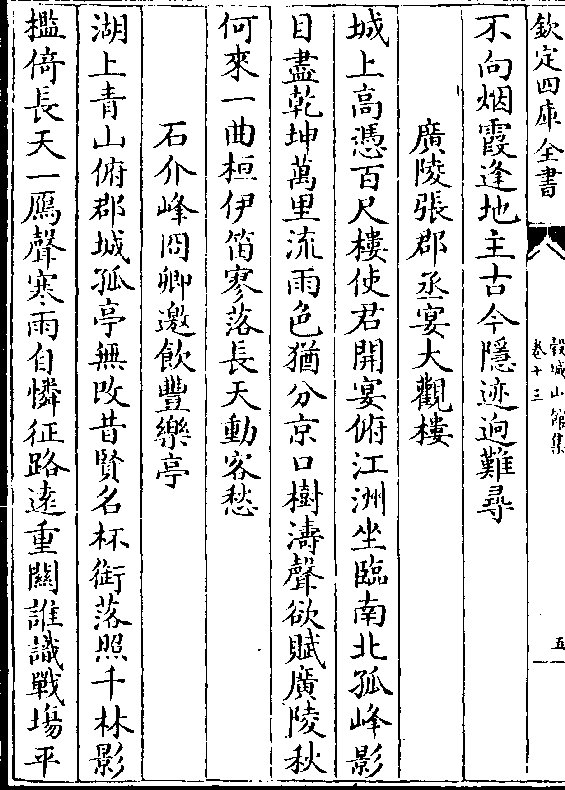 欽定四庫全書
穀城山館集
卷十三
五
不向烟霞逢地主古今隱迹逈難尋
廣陵張郡丞宴大觀樓
城上高憑百尺樓使君開宴俯江洲坐臨南北孤峰影
目盡乾坤萬里流雨色猶分京口樹濤聲欲賦廣陵秋
何來一曲桓伊笛寥落長天動客愁
石介峰冏卿邀飲豐樂亭
湖上青山俯郡城孤亭無改昔賢名杯銜落照千林影
檻倚長天一鴈聲寒雨自憐征路逺重闗誰識戰塲平